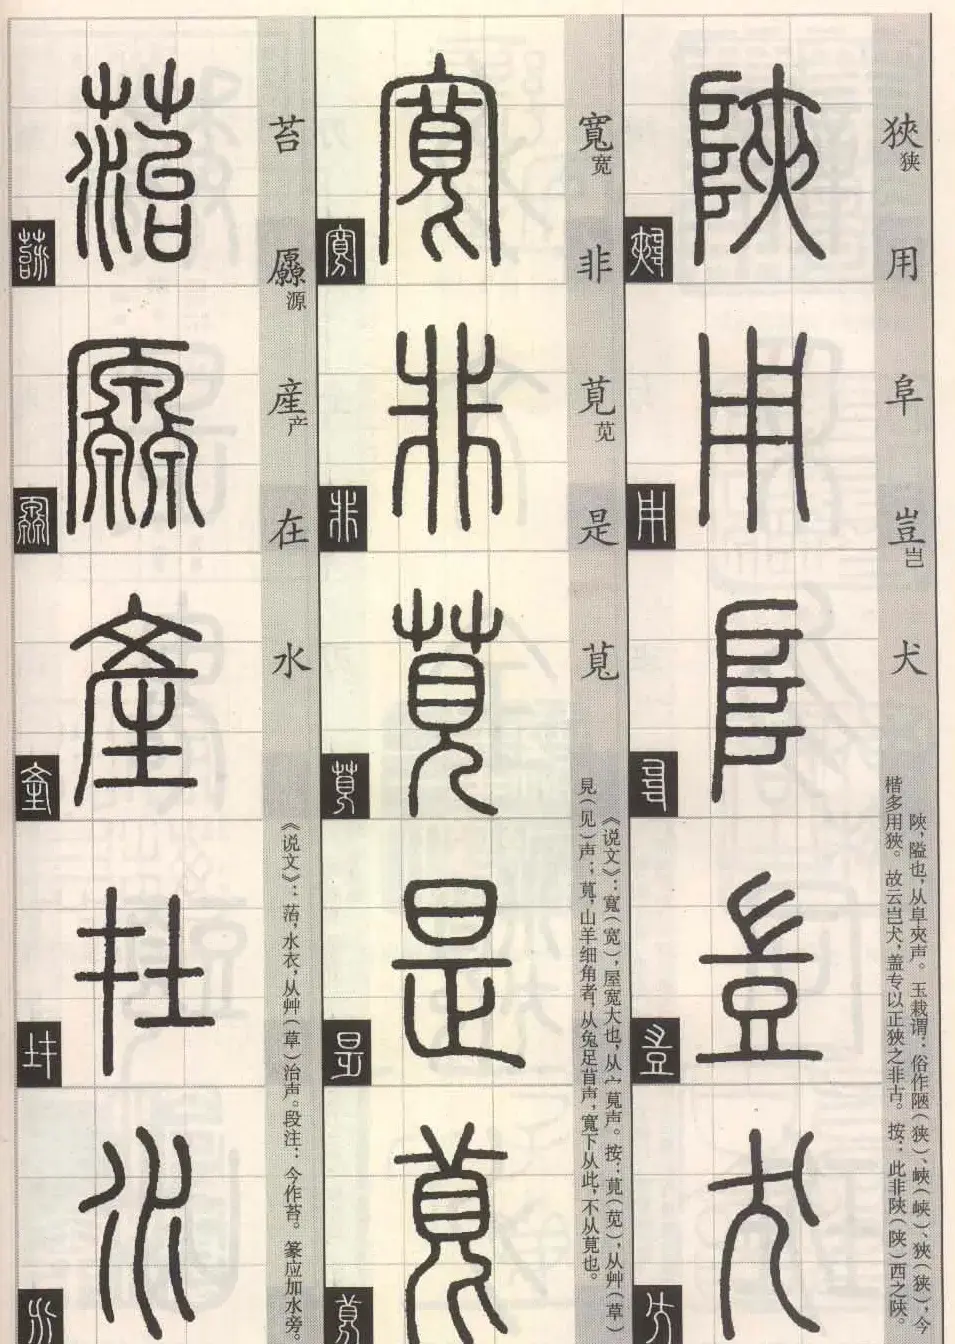 狹狭 用 阜 豈岂 犬
陝,隘也,从阜夾声。玉栽谓:俗作陿(狭)、峽(峡)、狹(狭),今
楷多用狹。故云岂犬,盖专以正狹之非古。按:此非陝(陕)西之陝。
寬宽 非 莧苋 是 萈
《说文》:寬(宽),屋寬大也,从宀萈声。按:莧(苋),从艸(草)
見(见)声;萈,山羊细角者,从兔足苜声,寬下从此,不从莧也。
苔 厵源 産产 在 水
《说文》:菭,水衣,从艸(草)治声。段注:今作苔。篆应加水旁。